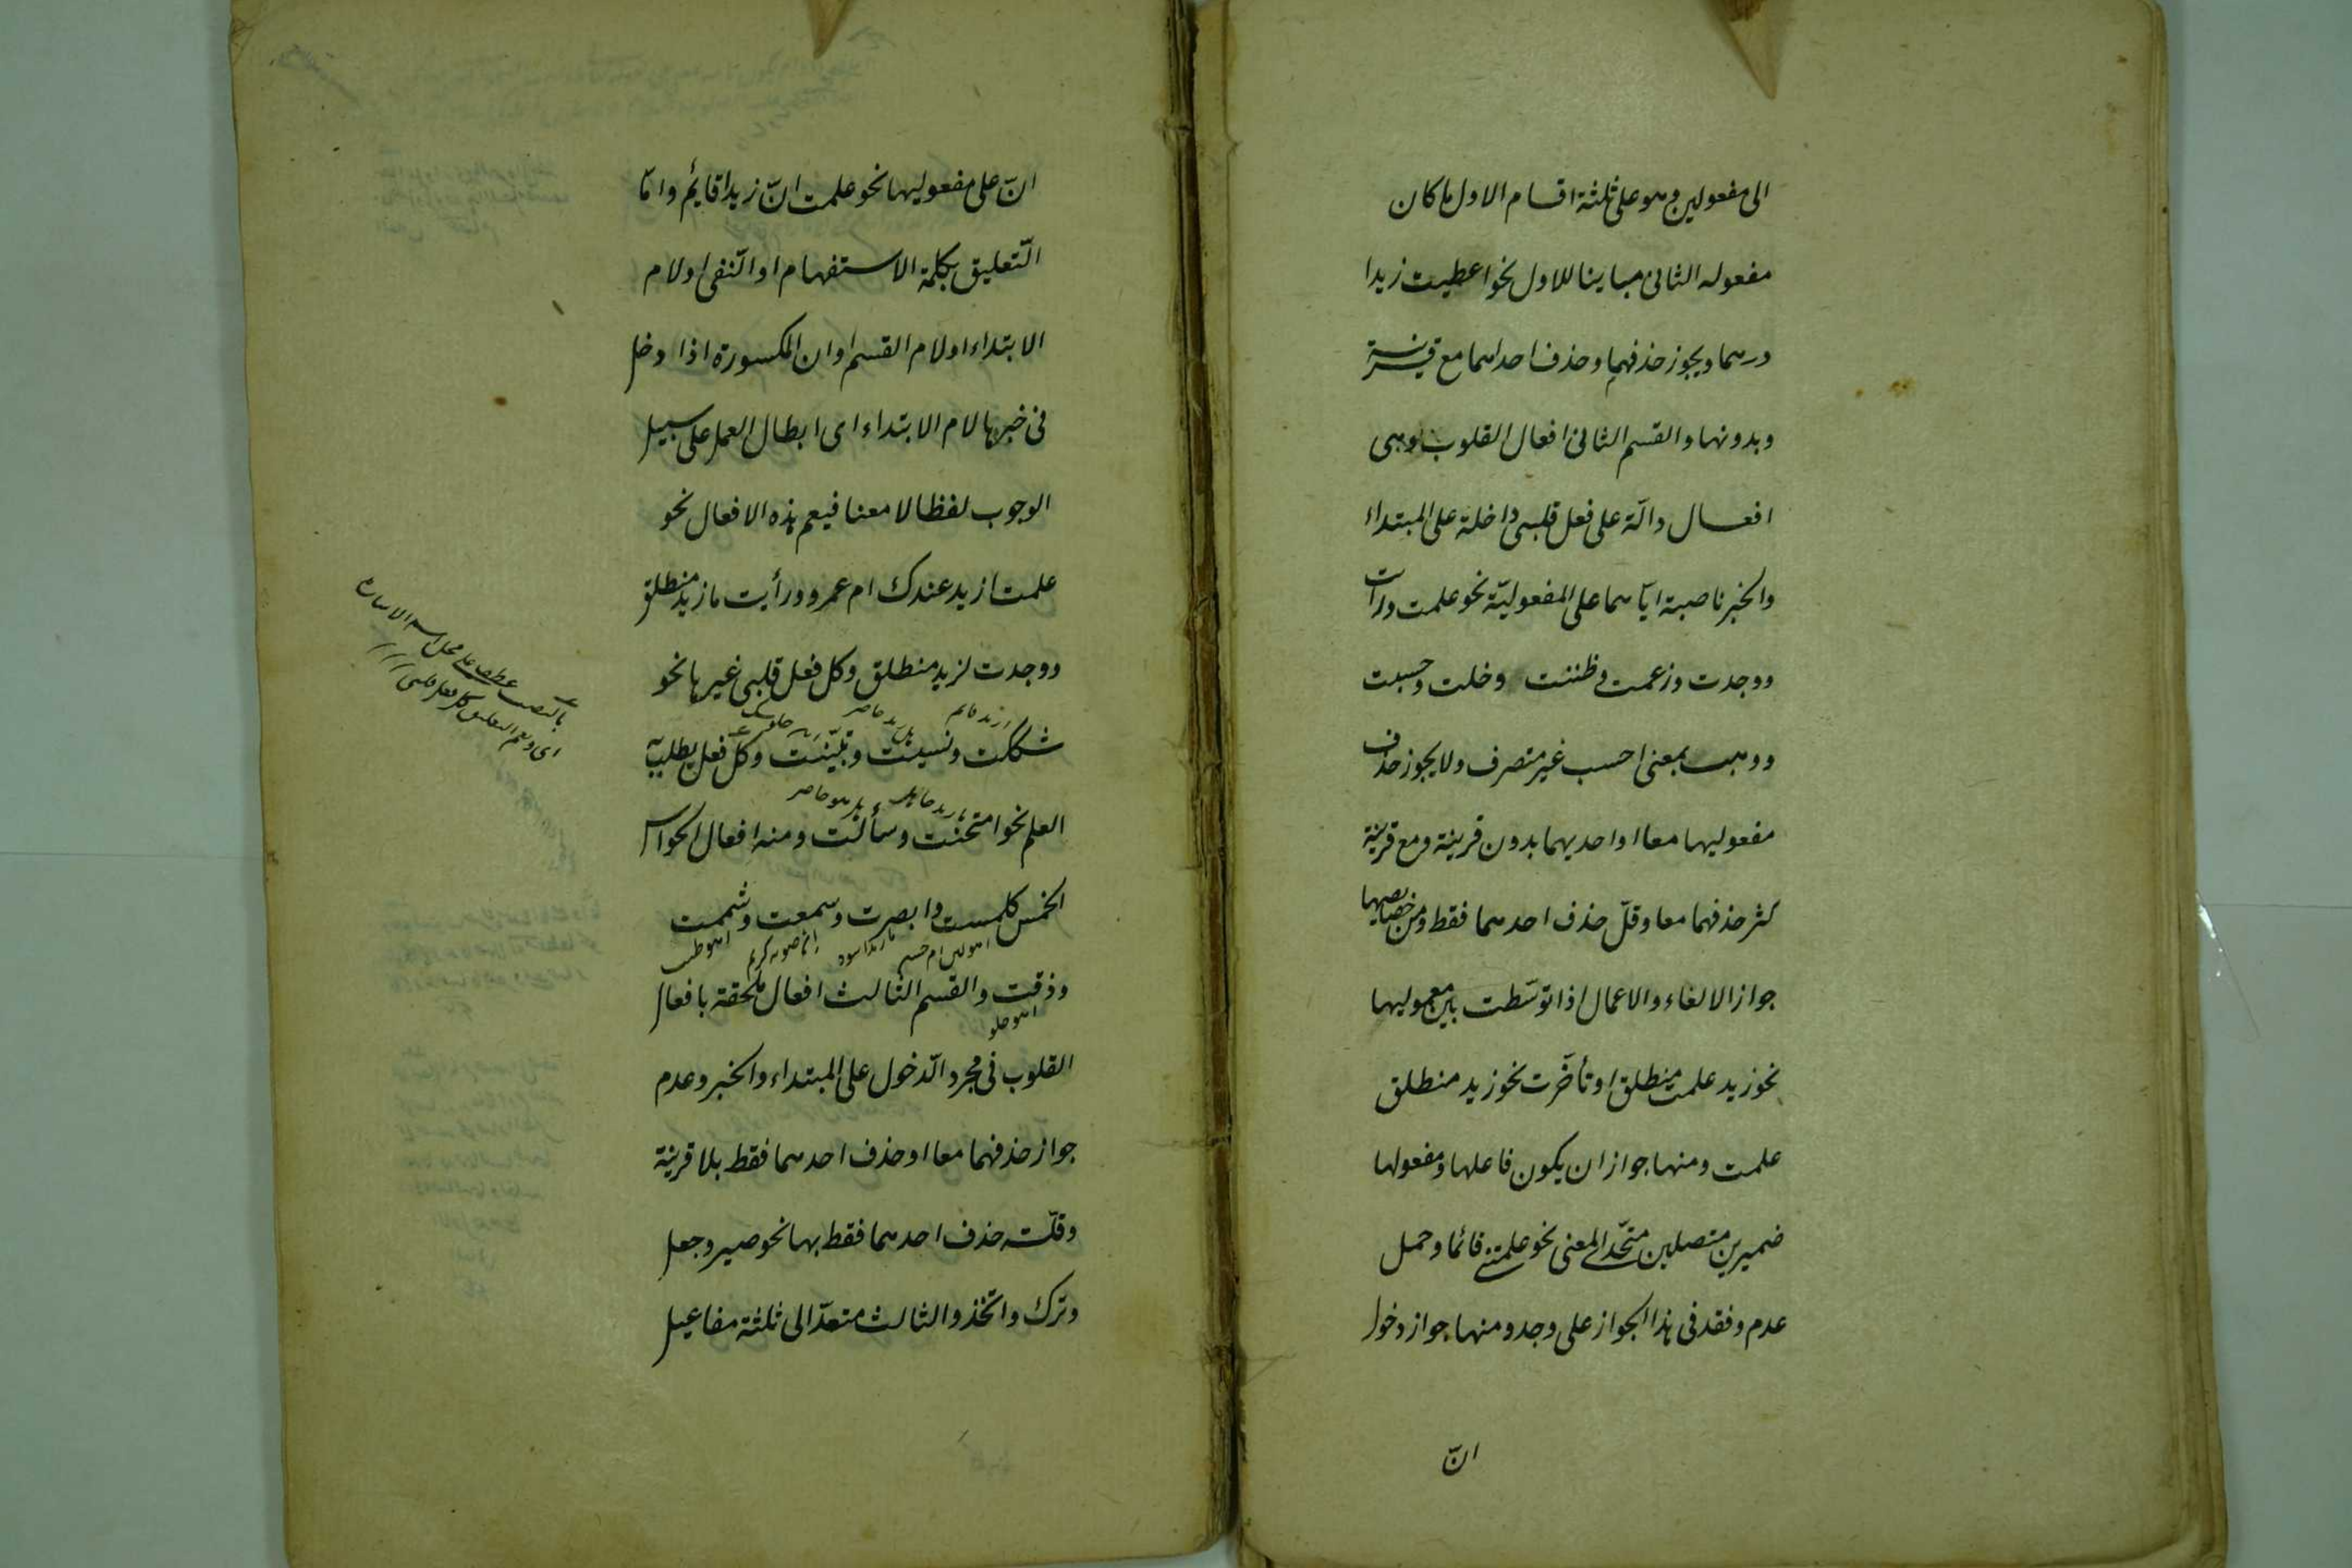 الى مفعولين وهو على ثلثة اقسام الاول ما كان
مفعوله الثانى مباينا للاول نحو اعطيت زيدا
درهما ويجوز حذفهما وحذف احدهما مع قرينة
وبدونها والقسم الثانى افعال القلوب وهى
افعال دالّة على فعل قلبى داخلة على المبتداء
والخبر ناصبة ايّاهما على المفعوليّة نحو علمت ورايت
ووجدت وزعمت وظننت وخلت وحسبت
ووهب بمعنى احسب غير متصرف ولا يجوز حذف
مفعوليها معا او احديهما بدون قرينة ومع قرينة
كثر حذفهما معا وقلّ حذف احدهما فقط ومن خصايصها
جواز الالغاء والاعمال اذا توسّطت بين معموليها
نحو زيد علمت منطلق او تأخّرت نحو زيد منطلق
علمت ومنها جواز ان يكون فاعلها ومفعولها
ضميرين متصلين متّحدا المعنى نحو علمتنى قائما وحمل
عدم وفقد فى هذا الجواز على وجد ومنها جواز دخول
انّ
انّ على مفعوليها نحو علمت انّ زيدا قايم وامّا
التّعليق بكلمة الاستفهام او النّفى او لام
الابتداء او لام القسم او ان المكسورة اذا دخل
فى خبرها لام الابتداء اى ابطال العمل على سبيل
الوجوب لفظا لا معنا فيعم هذه الافعال نحو
علمت ازيد عندك ام عمرو ورأيت ما زيد منطلق
ووجدت لزيد منطلق وكل فعل قلبى غيرها نحو
شككت ونسيت وتبيّنت وكلّ فعل يطلب به
العلم نحو امتحنت وسألت ومنه افعال الحواس
الخمس كلمست وابصرت وسمعت وشممت
وذقت والقسم الثالث افعال ملحقة بافعال
القلوب فى مجرد الدّخول على المبتداء والخبر وعدم
جواز حذفهما معا او حذف احدهما فقط بلا قرينة
وقلّة حذف احدهما فقط بها نحو صير وجعل
وترك واتّخذ والثالث متعدّ الى ثلثة مفاعيل
بالنصب عطف على محل
اى ويعم التعليق كل فعل قلبى